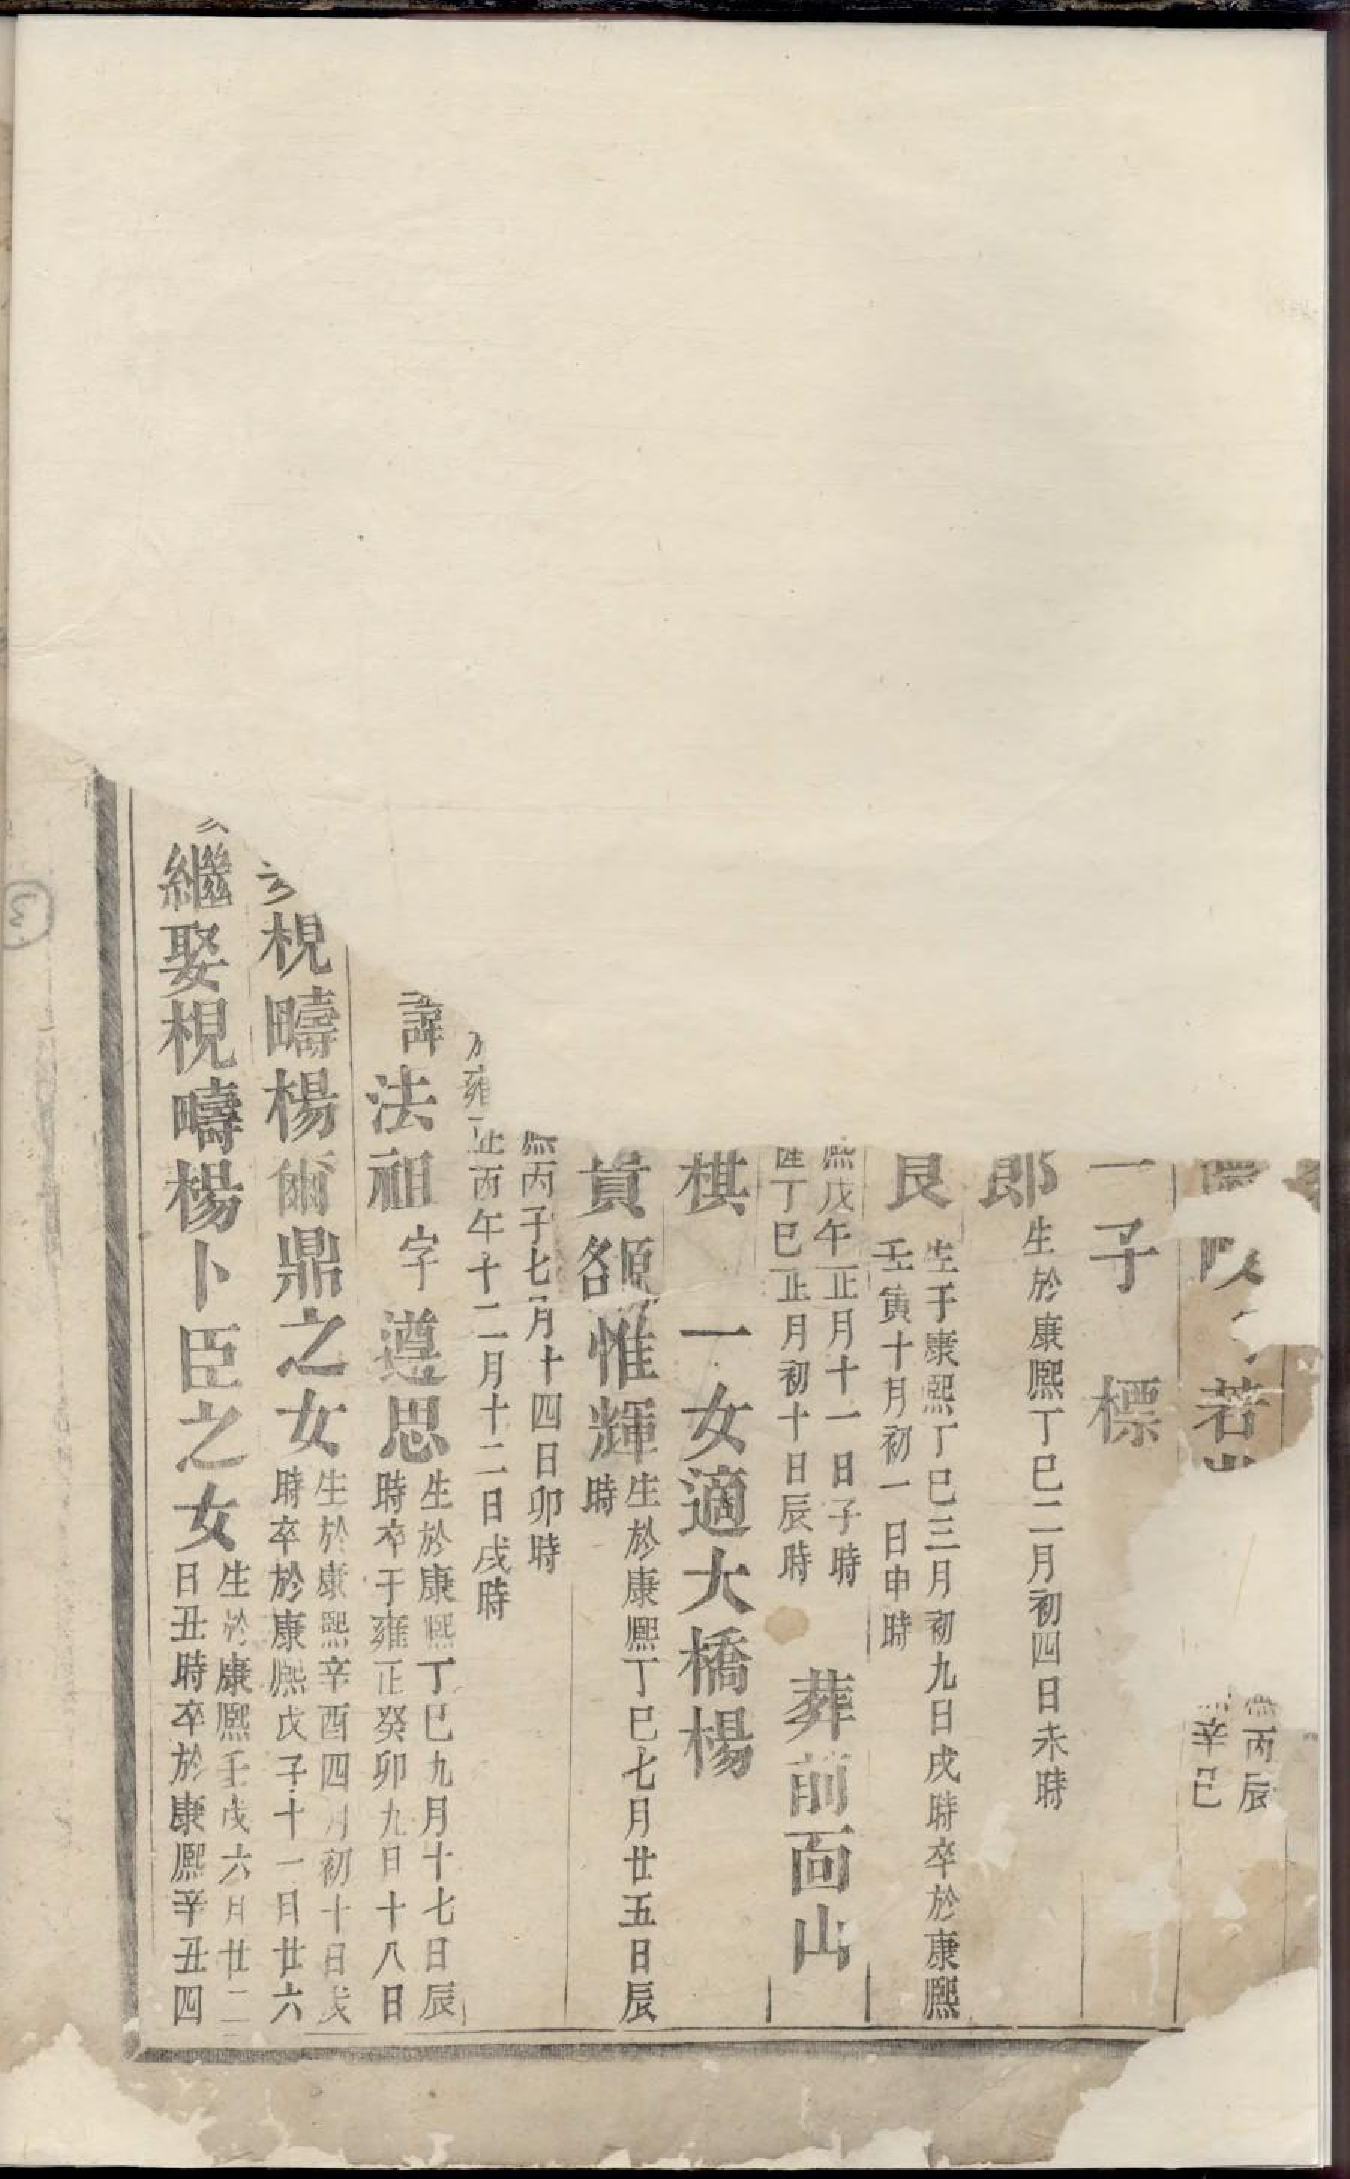 若
熙丙辰
辛巳
一子 標
郎
生於康熙丁巳二月初四日未時
良
生于康熙丁巳三月初九日戌時卒於康熙
壬寅十月初一日申時
熙戊午正月十一日子時
丁巳正月初十日辰時
葬前面山
棋 一女適大橋楊
貢額惟輝
生於康熙丁巳七月廿五日辰
時
熙丙子七月十四日卯時
雍正丙午十二月十二日戌時
諱法祖字遵思
生於康熙丁巳九月十七日辰
時卒于雍正癸卯九日十八日
梘疇楊爾鼎之女
生於康熙辛酉四月初十日戌
時卒於康熙戊子十一月廿六
繼娶梘疇楊卜臣之女
生於康熙壬戌六月廿二
日丑時卒於康熙辛丑四